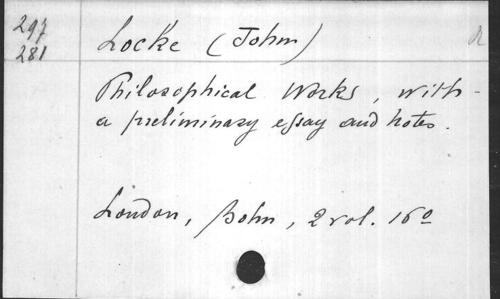 297
281
Locke (John)
Philosophical Works, with
a preliminary essay and notes.
London, Bohn, 2 vol. 16º